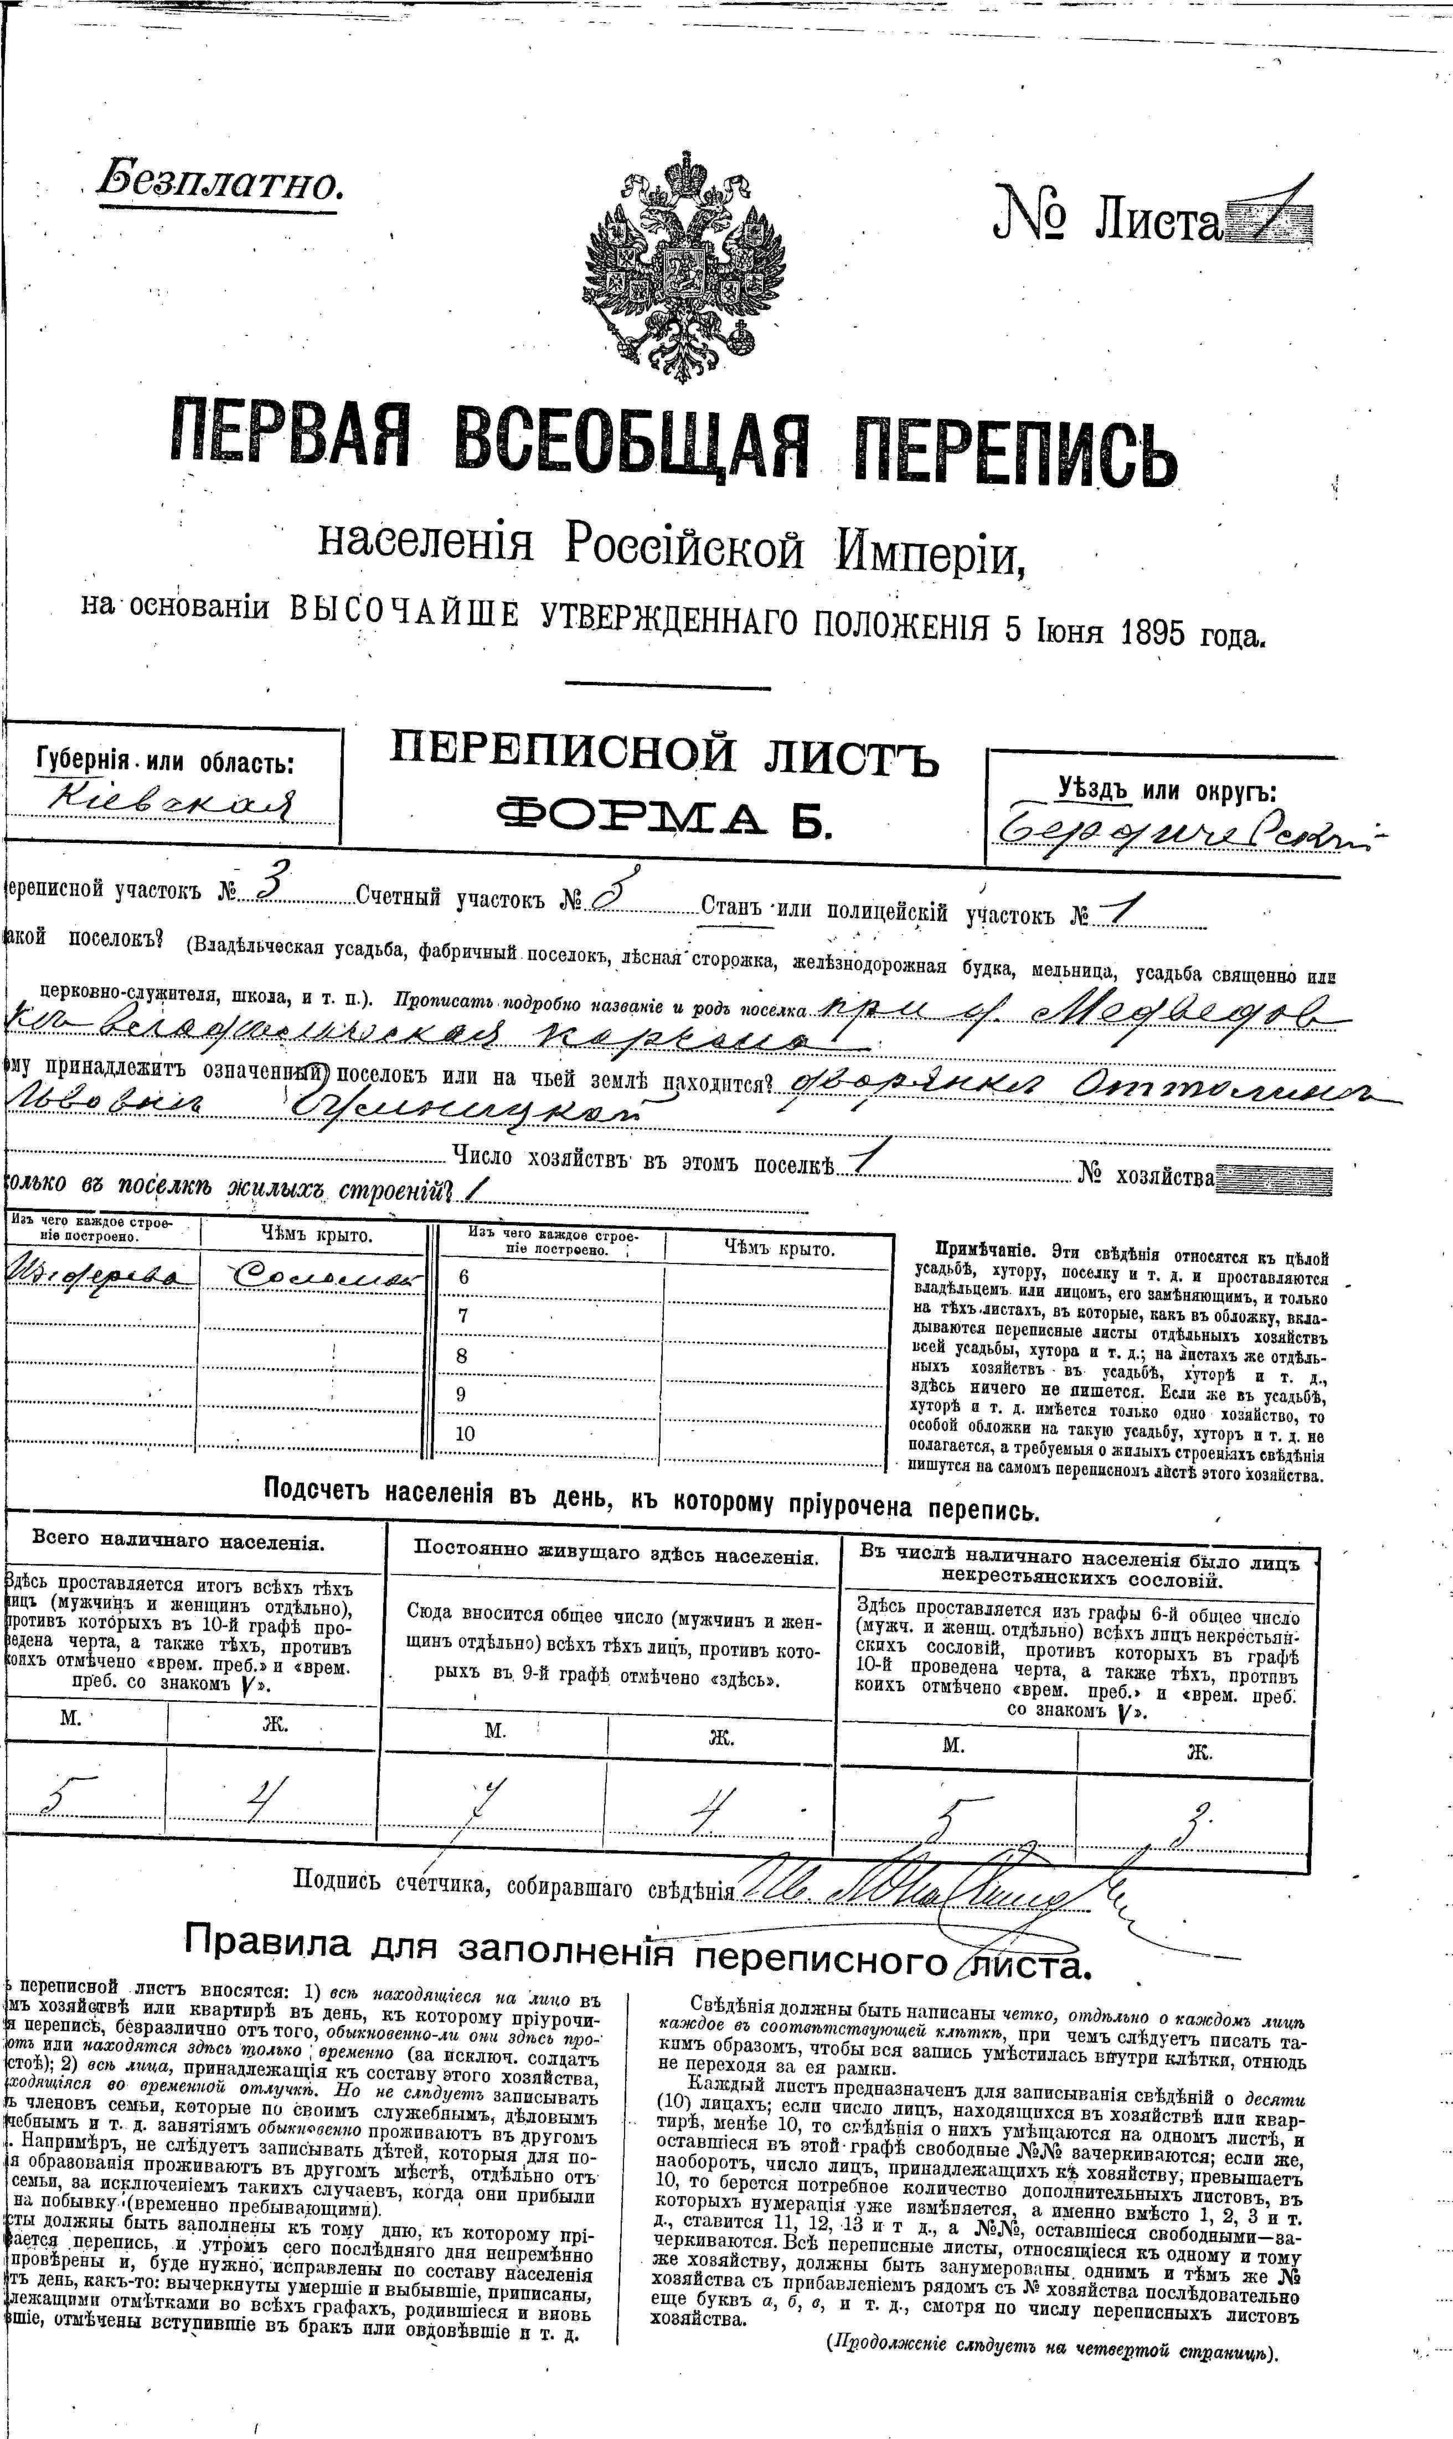 Безплатно.
№ Листа 1
ПЕРВАЯ ВСЕОБЩАЯ ПЕРЕПИСЬ
населенія Россійской Имперіи,
на основаніи ВЫСОЧАЙШЕ УТВЕРЖДЕННАГО ПОЛОЖЕНІЯ 5 Іюня 1895 года.
Губернія или область:
Кіевская
ПЕРЕПИСНОЙ ЛИСТЪ
ФОРМА Б.
Уѣздъ или округъ:
Бердичевскій
ереписной участокъ № 3 Счетный участокъ № 5 Станъ или полицейскій участокъ № 1
акой поселокъ? (Владѣльческая усадьба, фабричный поселокъ, лѣсная сторожка, желѣзнодорожная будка, мельница, усадьба священно или
церковно-служителя, школа, и т. п.). Прописать подробно названіе и родъ поселка при д. Медведов
кѣ владѣльческая корчма
ому принадлежитъ означенный поселокъ или на чьей землѣ находится? дворянкѣ Оттолинѣ
Львовнѣ
Число хозяйствъ въ этомъ поселкѣ 1 № хозяйства
олько въ поселкѣ жилыхъ строеній? 1
Изъ чего каждое строеніе построено. Чѣмъ крыто. Изъ чего каждое строеніе построено. Чѣмъ крыто.
Из дерева Соломой 6
7
8
9
10
Примѣчаніе. Эти свѣдѣнія относятся къ цѣлой
усадьбѣ, хутору, поселку и т. д. и проставляются
владѣльцемъ или лицомъ, его замѣняющимъ, и только
на тѣхъ листахъ, въ которые, какъ въ обложку, вкла-
дываются переписные листы отдѣльныхъ хозяйствъ
всей усадьбы, хутора и т. д.; на листахъ же отдѣль-
ныхъ хозяйствъ въ усадьбѣ, хуторѣ и т. д.,
здѣсь ничего не пишется. Если же въ усадьбѣ,
хуторѣ и т. д. имѣется только одно хозяйство, то
особой обложки на такую усадьбу, хуторъ и т. д. не
полагается, а требуемыя о жилыхъ строеніяхъ свѣдѣнія
пишутся на самомъ переписномъ листѣ этого хозяйства.
Подсчетъ населенія въ день, къ которому пріурочена перепись.
Всего наличнаго населенія.
Здѣсь проставляется итогъ всѣхъ тѣхъ
лицъ (мужчинъ и женщинъ отдѣльно),
противъ которыхъ въ 10-й графѣ про-
ведена черта, а также тѣхъ, противъ
коихъ отмѣчено «врем. преб.» и «врем.
преб. со знакомъ V».
Постоянно живущаго здѣсь населенія.
Сюда вносится общее число (мужчинъ и жен-
щинъ отдѣльно) всѣхъ тѣхъ лицъ, противъ кото-
рыхъ въ 9-й графѣ отмѣчено «здѣсь».
Въ числѣ наличнаго населенія было лицъ
некрестьянскихъ сословій.
Здѣсь проставляется изъ графы 6-й общее число
(мужч. и женщ. отдѣльно) всѣхъ лицъ некрестьян-
скихъ сословій, противъ которыхъ въ графѣ
10-й проведена черта, а также тѣхъ, противъ
коихъ отмѣчено «врем. преб.» и «врем. преб.
со знакомъ V».
М. Ж. М. Ж. М. Ж.
5 4 7 4 5 3
Подпись счетчика, собиравшаго свѣдѣнія
Правила для заполненія переписного листа.
ь переписной листъ вносятся: 1) всѣ находящіеся на лицо въ
мъ хозяйствѣ или квартирѣ въ день, къ которому пріурочи-
я перепись, безразлично отъ того, обыкновенно-ли они здѣсь про-
отъ или находятся здѣсь только временно (за исключ. солдатъ
стоѣ); 2) всѣ лица, принадлежащія къ составу этого хозяйства,
ходящіяся во временной отлучкѣ. Но не слѣдуетъ записывать
ъ членовъ семьи, которые по своимъ служебнымъ, дѣловымъ
чебнымъ и т. д. занятіямъ обыкновенно проживаютъ въ другомъ
. Напримѣръ, не слѣдуетъ записывать дѣтей, которыя для по-
я образованія проживаютъ въ другомъ мѣстѣ, отдѣльно отъ
семьи, за исключеніемъ такихъ случаевъ, когда они прибыли
на побывку (временно пребывающими).
сты должны быть заполнены къ тому дню, къ которому прі-
вается перепись, и утромъ сего послѣдняго дня непремѣнно
провѣрены и, буде нужно, исправлены по составу населенія
тъ день, какъ-то: вычеркнуты умершіе и выбывшіе, приписаны,
лежащими отмѣтками во всѣхъ графахъ, родившіеся и вновь
вшіе, отмѣчены вступившіе въ бракъ или овдовѣвшіе и т. д.
Свѣдѣнія должны быть написаны четко, отдѣльно о каждомъ лицѣ
каждое въ соотвѣтствующей клѣткѣ, при чемъ слѣдуетъ писать та-
кимъ образомъ, чтобы вся запись умѣстилась внутри клѣтки, отнюдь
не переходя за ея рамки.
Каждый листъ предназначенъ для записыванія свѣдѣній о десяти
(10) лицахъ; если число лицъ, находящихся въ хозяйствѣ или квар-
тирѣ, менѣе 10, то свѣдѣнія о нихъ умѣщаются на одномъ листѣ, и
оставшіеся въ этой графѣ свободные №№ зачеркиваются; если же,
наоборотъ, число лицъ, принадлежащихъ къ хозяйству, превышаетъ
10, то берется потребное количество дополнительныхъ листовъ, въ
которыхъ нумерація уже измѣняется, а именно вмѣсто 1, 2, 3 и т.
д., ставится 11, 12, 13 и т д., а №№, оставшіеся свободными—за-
черкиваются. Всѣ переписные листы, относящіеся къ одному и тому
же хозяйству, должны быть занумерованы однимъ и тѣмъ же №
хозяйства съ прибавленіемъ рядомъ съ № хозяйства послѣдовательно
еще буквъ а, б, в, и т. д., смотря по числу переписныхъ листовъ
хозяйства.
(Продолженіе слѣдуетъ на четвертой страницѣ).